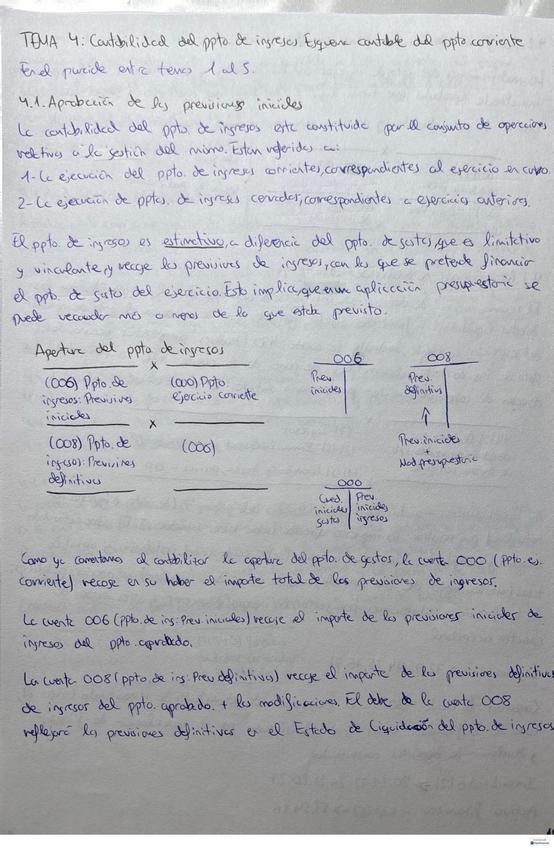 TEMA 4: Contabilidad del ppto. de ingresos. Esquema contable del ppto corriente
En el parcial entra temas 1 al 5.
4.1. Aprobación de las previsiones iniciales
La contabilidad del ppto. de ingresos está constituida por el conjunto de operaciones
relativas a la gestión del mismo. Están referidas a:
1- La ejecución del ppto. de ingresos corrientes, correspondientes al ejercicio en curso.
2- La ejecución de pptos. de ingresos cerrados, correspondientes a ejercicios anteriores.
El ppto. de ingresos es estimativo, a diferencia del ppto. de gastos, que es limitativo
y vinculante, y recoge las previsiones de ingresos, con las que se pretende financiar
el ppto. de gasto del ejercicio. Esto implica, que en un aplicación presupuestaria se
puede recaudar más o menos de lo que estaba previsto.
Apertura del ppto de ingresos
x
(006) Ppto. de
ingresos: Previsiones
iniciales
(000) Ppto.
ejercicio corriente
x
(008) Ppto. de
ingresos: Previsiones
definitivas
(006)
006
Prev
iniciales
008
Prev
definitivas
↑
Prev. iniciales
+
Mod presupuestaria
000
Cred.
iniciales
gastos
Prev.
iniciales
ingresos
Como ya comentamos al contabilizar la apertura del ppto. de gastos, la cuenta 000 (Ppto. ej.
corriente) recoge en su haber el importe total de las previsiones de ingresos.
La cuenta 006 (ppto. de ing: Prev. iniciales) recoge el importe de las previsiones iniciales de
ingresos del ppto. aprobado.
La cuenta 008 (ppto. de ing: Prev definitivas) recoge el importe de las previsiones definitivas
de ingresos del ppto. aprobado + las modificaciones. El debe de la cuenta 008
reflejará las previsiones definitivas en el Estado de Liquidación del ppto. de ingresos